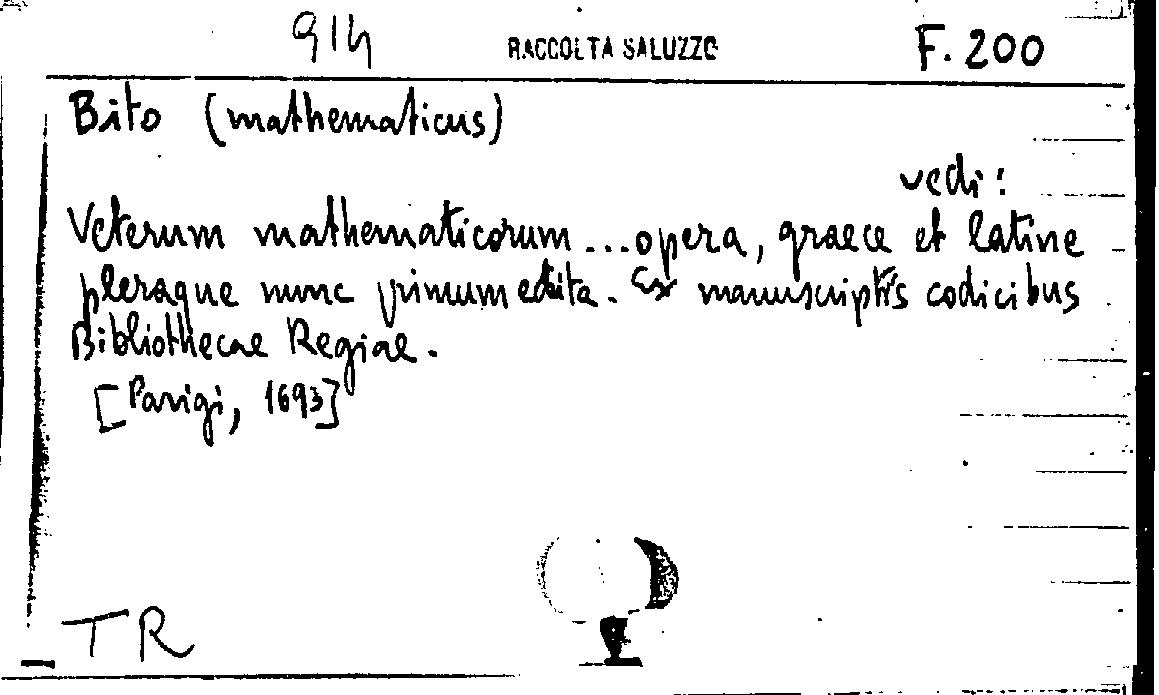 914 RACCOLTA SALUZZO F. 200
Bito (mathematicus)
vedi:
Veterum mathematicorum ... opera, graece et latine
pleraque nunc primum edita. Ex manuscriptis codicibus
Bibliothecae Regiae.
[Parigi, 1693]
TR